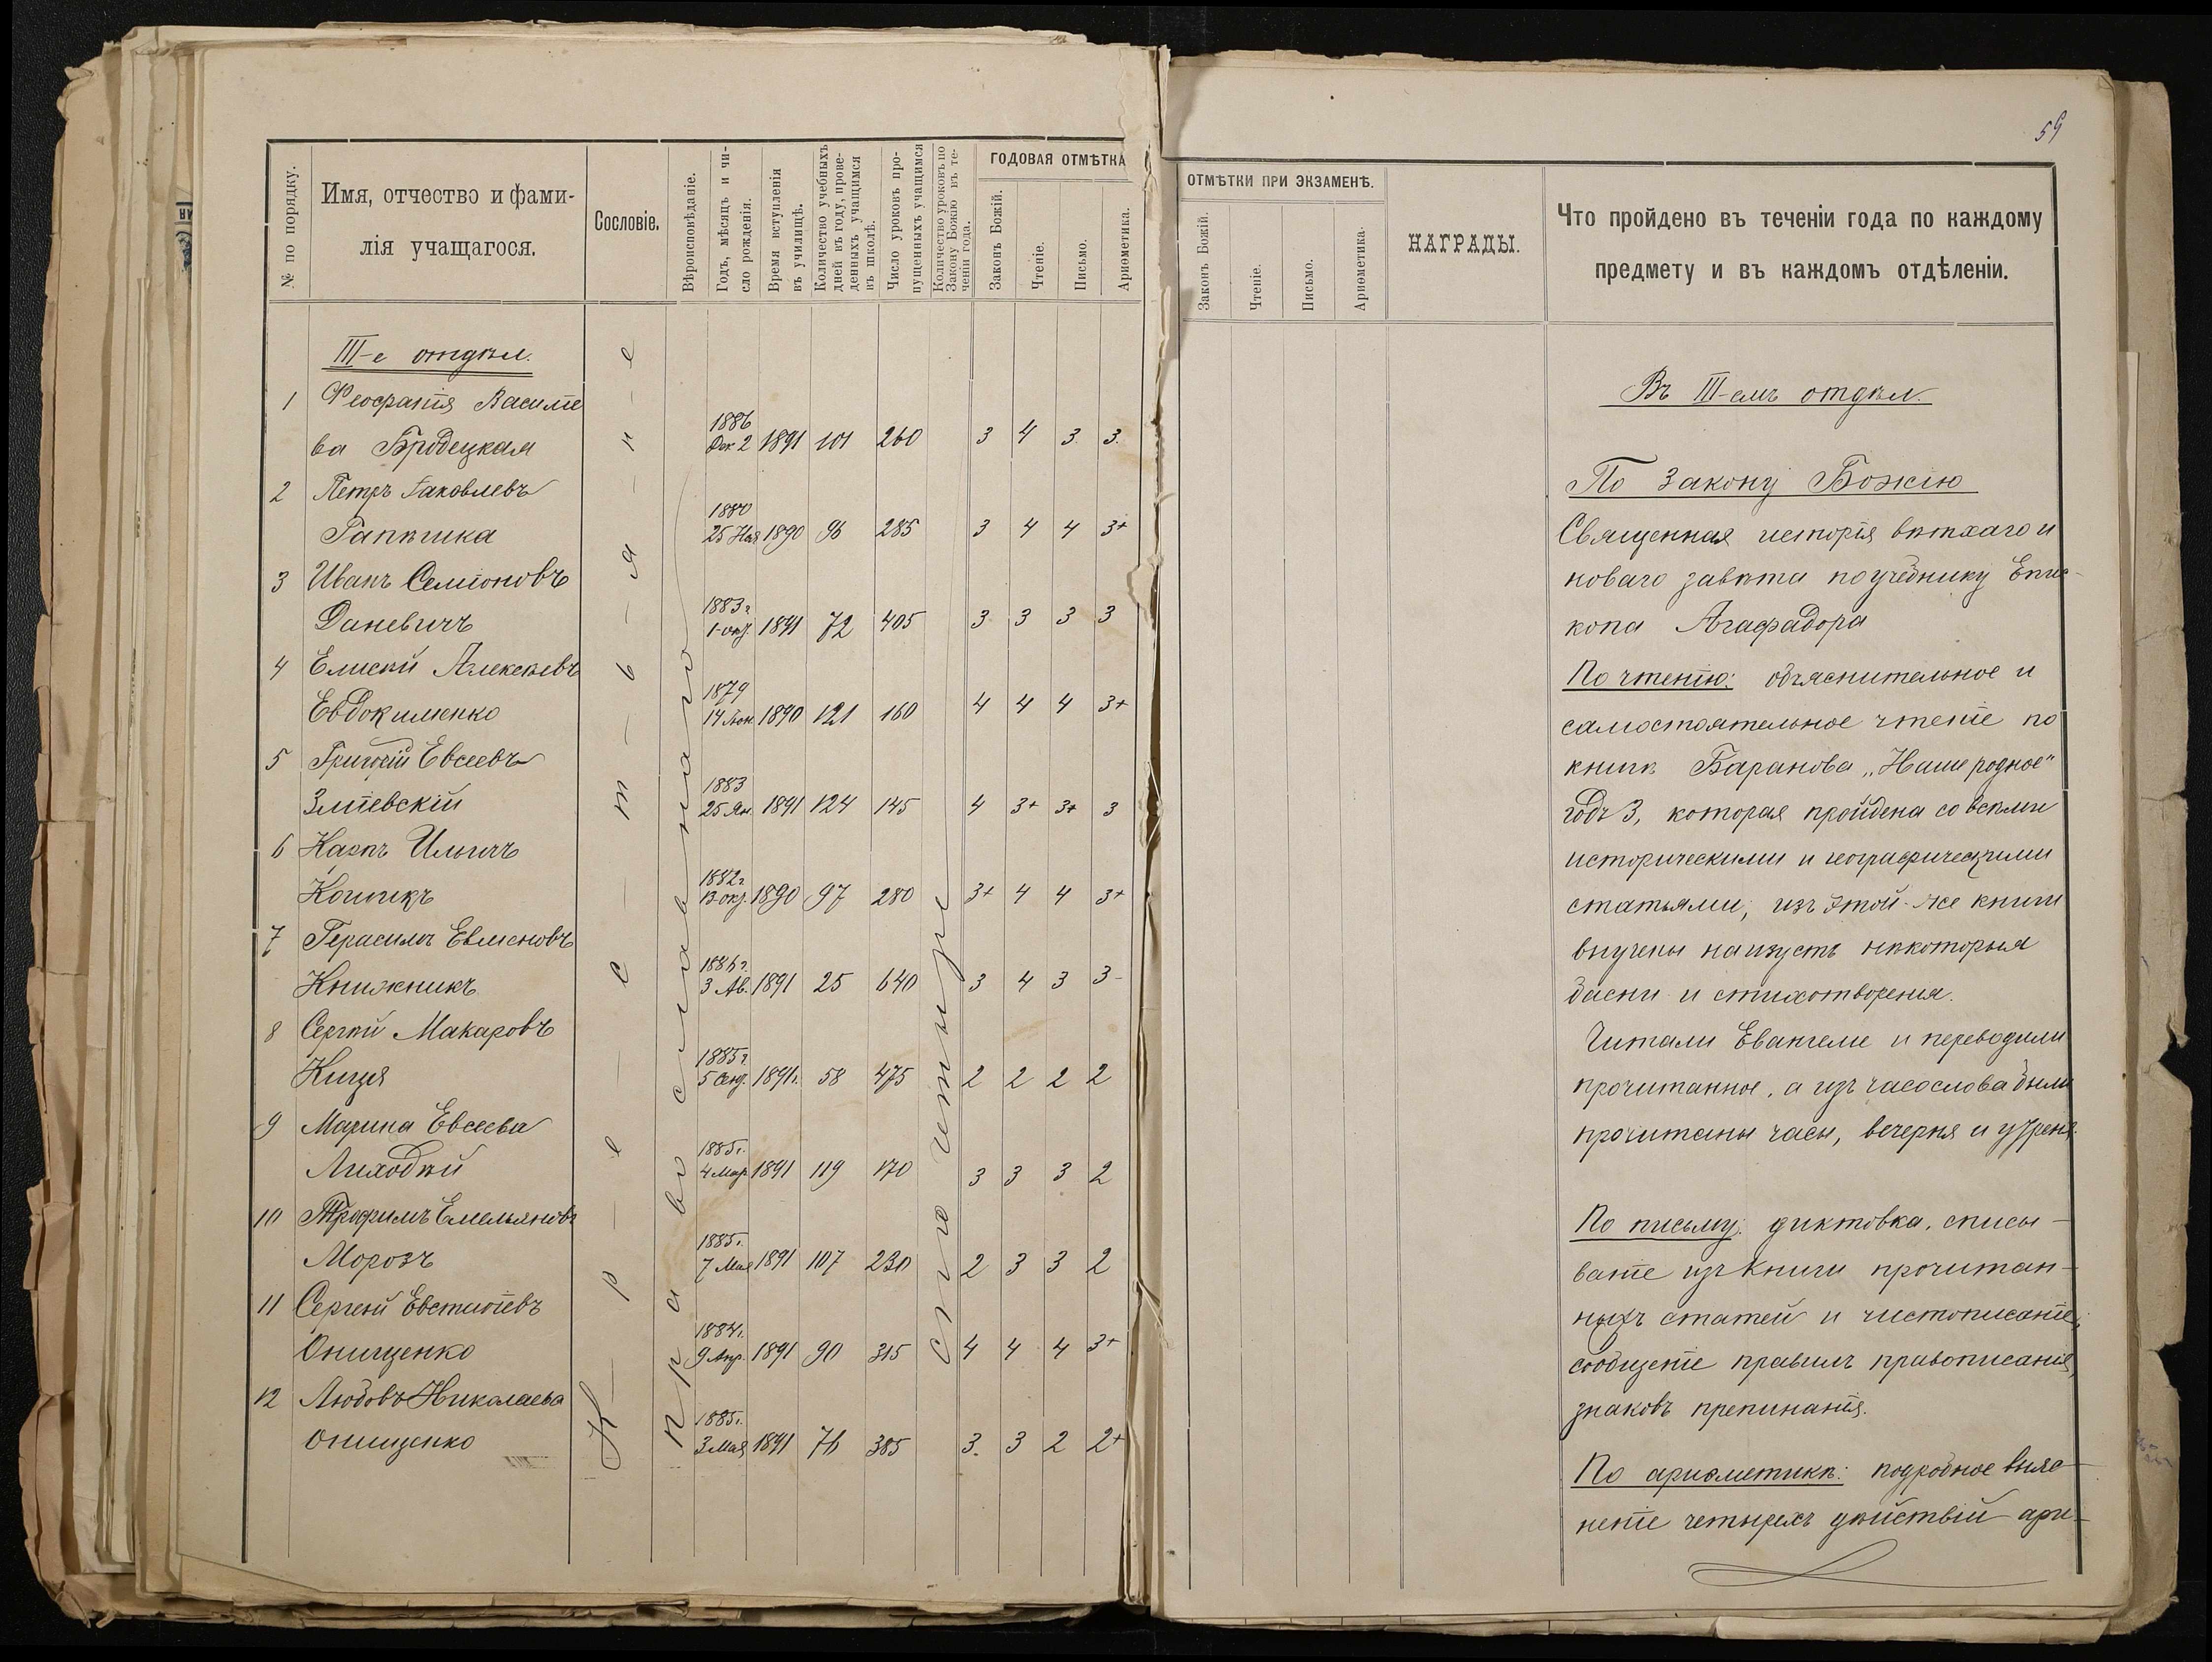 59
№ по порядку.
Имя, отчество и фами-
лія учащагося.
Сословіе.
Вѣроисповѣданіе.
Годъ, мѣсяцъ и чи-
сло рожденія.
Время вступленія
въ училищѣ.
Количество учебныхъ
дней въ году, прове-
денныхъ учащимся
въ школѣ.
Число уроковъ про-
пущенныхъ учащимся
Количество уроковъ по
Закону Божію въ те-
ченіи года.
ГОДОВАЯ ОТМѢТКА
Законъ Божій.
Чтеніе.
Письмо.
Ариѳметика.
III-е отдѣл.
К-р-е-с-т-ь-я-н-е
православнаго
1 Феофанія Василіе
ва Бродецкая 1886 Дек 2 1891 101 260 3 4 3 3.
2 Петръ Іаковлевъ
1880 25 Ноя 1890 96 285 3 4 4 3+
3 Иванъ Семіоновъ
Даневичъ 1883г. 1-окт. 1891 72 405 3 3 3 3
4 Елисѣй Алексѣевъ
Евдокименко 1879 14 Іюн. 1890 121 160 4 4 4 3+
5 Григорій Евсеевъ
Зміевскій 1883 25 Ян. 1891 124 145 4 3+ 3+ 3
6 Карпъ Ильичъ
1882г 13 окт. 1890 97 280 3+ 4 4 3+
7 Герасимъ Евменовъ
Книжникъ 1886г. 3 Ав. 1891 25 640 3 4 3 3-
8 Сергѣй Макаровъ
Кицѧ 1885г 5 Сент. 1891г. 58 475 2 2 2 2
9 Марина Евсеева
Лиходѣй 1885г. 4 Мар. 1891 119 170 3 3 3 2
10 Трофимъ Емельяновъ
Морозъ 1885г. 7 Мая 1891 107 230 2 3 3 2
11 Сергей Евстиѳіевъ
Онищенко 1884г. 9 Апр. 1891 90 315 4 4 4 3+
12 Любовь Николаева
Онищенко 1885г. 3 Мая 1891 76 385 3. 3 2 2+
ОТМѢТКИ ПРИ ЭКЗАМЕНѢ.
Законъ Божій.
Чтеніе.
Письмо.
Ариѳметика.
НАГРАДЫ.
Что пройдено въ теченіи года по каждому
предмету и въ каждомъ отдѣленіи.
Въ III-емъ отдѣл.
По Закону Божію
Священная исторія ветхаго и
новаго завѣта по учебнику Епис-
копа Агафадора
По чтенію: объяснительное и
самостоятельное чтеніе по
книгѣ Баранова „Наше родное"
годъ 3, которая пройдена со всѣми
историческими и географическими
статьями; изъ этой-же книги
выучены наизусть нѣкоторыя
басни и стихотворенія.
Читали Евангеліе и переводили
прочитанное, а изъ часослова были
прочитаны часы, вечерня и утреня.
По письму: диктовка, списы-
ваніе изъ книги прочитан-
ныхъ статей и чистописаніе;
сообщеніе правилъ правописанія,
знаковъ препинанія.
По ариѳметикѣ: подробное выяс-
неніе четырехъ дѣйствій ари-